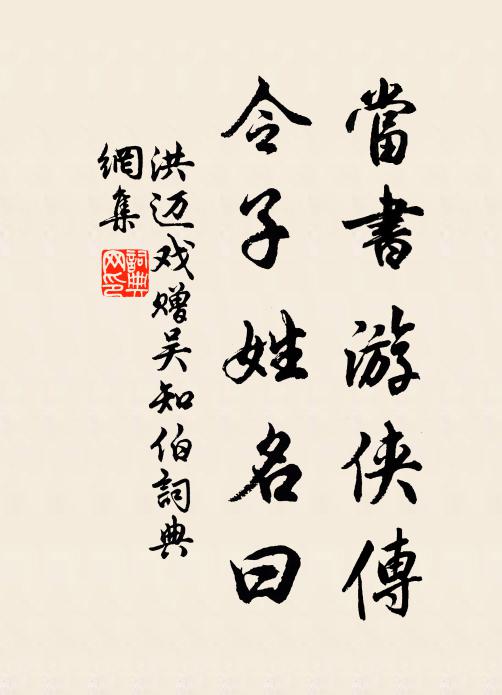 當書游俠傳
令子姓名曰
洪迈戏赠吴知伯詞典
網集
詞典
网印